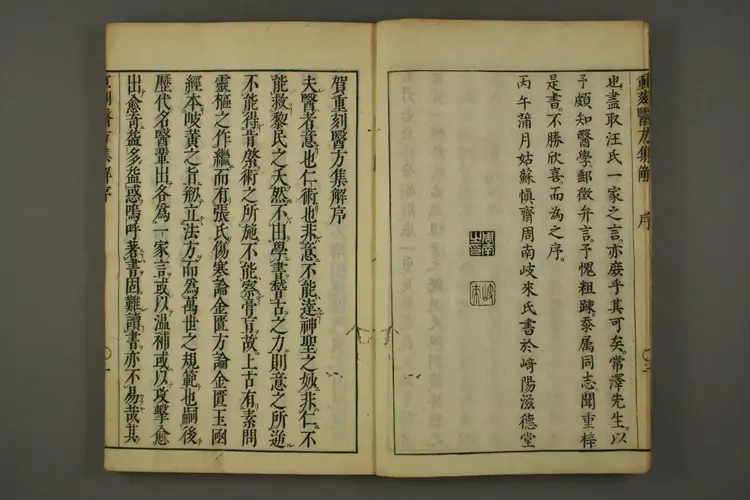 重刻醫方集解 序
也盡取汪氏一家之言亦庶乎其可矣常澤先生以
予頗知醫學郵徵弁言予愧粗踈忝属同志聞重梓
是書不勝欣喜而為之序
丙午蒲月姑蘇愼齋周南岐來氏書於﨑陽滋德堂
賀重刻醫方集解序
夫醫者意也仁術也非意不能達神聖之妙非仁不
能救黎民之夭然不由學書督古之力則意之所逆
不能得肯綮術之所施不能察膏肓故上古有素問
靈樞之作繼而有張氏傷寒論金匱方論金匱玉函
經本岐黃之旨剏立法方而為萬世之規範也嗣後
歷代名醫輩出各為一家言或以溫補或以攻擊愈
出愈奇益多益惑嗚呼著書固難讀書亦不易哉其
重刻醫方集解序 一